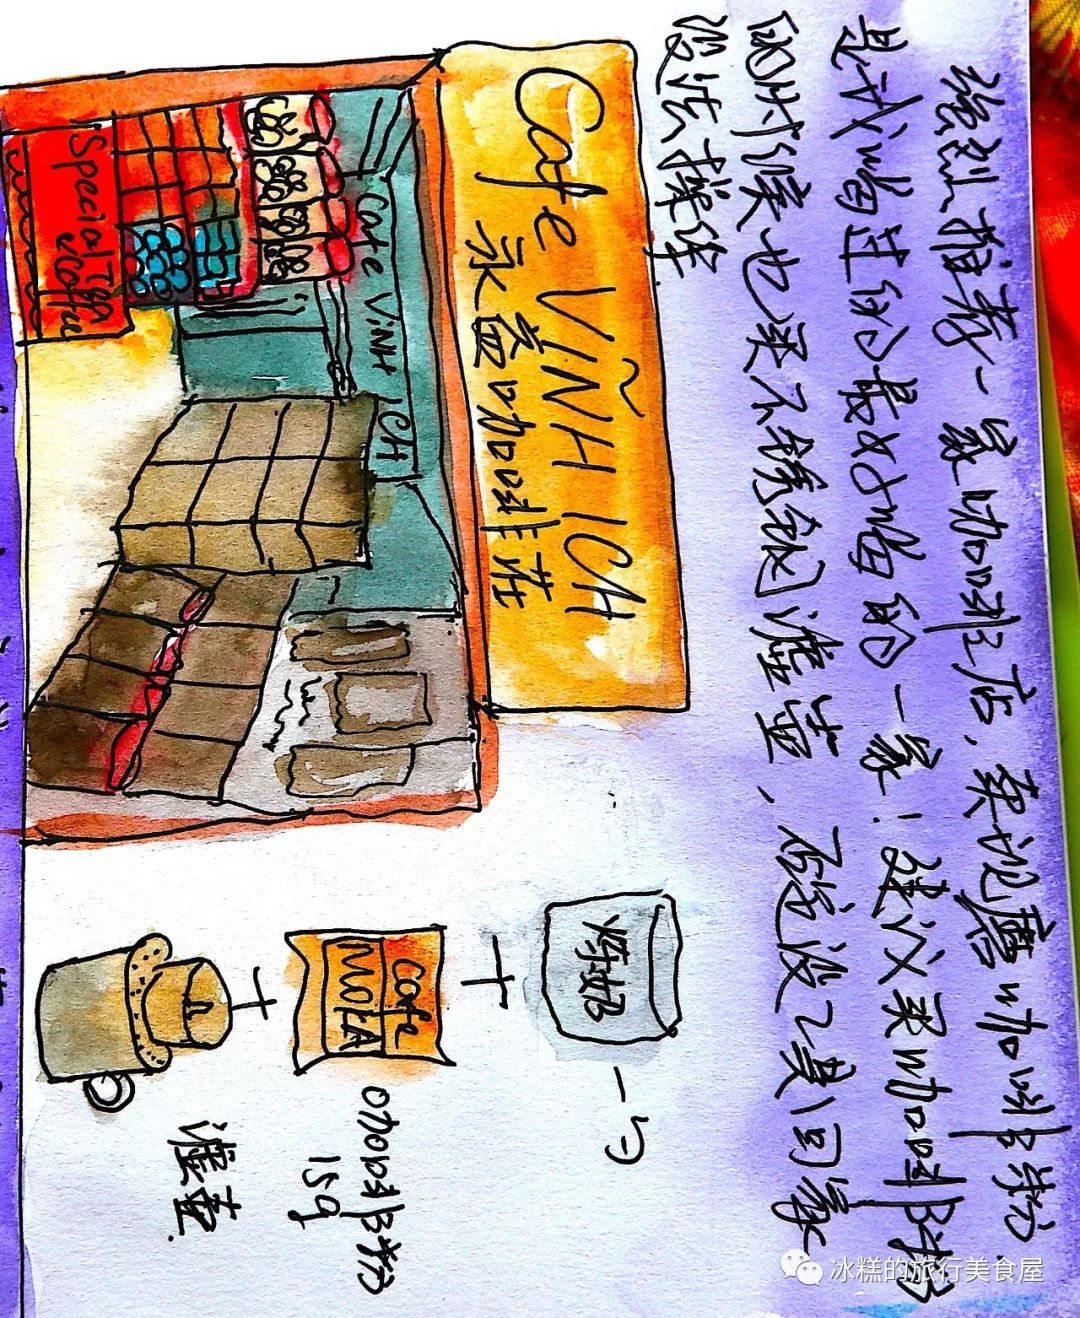 强烈推荐一家咖啡店，卖现磨咖啡粉，
是我喝过的最好喝的一家！建议买咖啡粉
的时候也买不锈钢滤壶，没工具回家
没法
Cafe VĨNH ICH
永益咖啡庄
Cafe VINH ICH
Special Tea
&Coffee
炼奶
一勺
+
Cafe
MOKA
咖啡粉
15g
+
滤壶.
冰糕的旅行美食屋